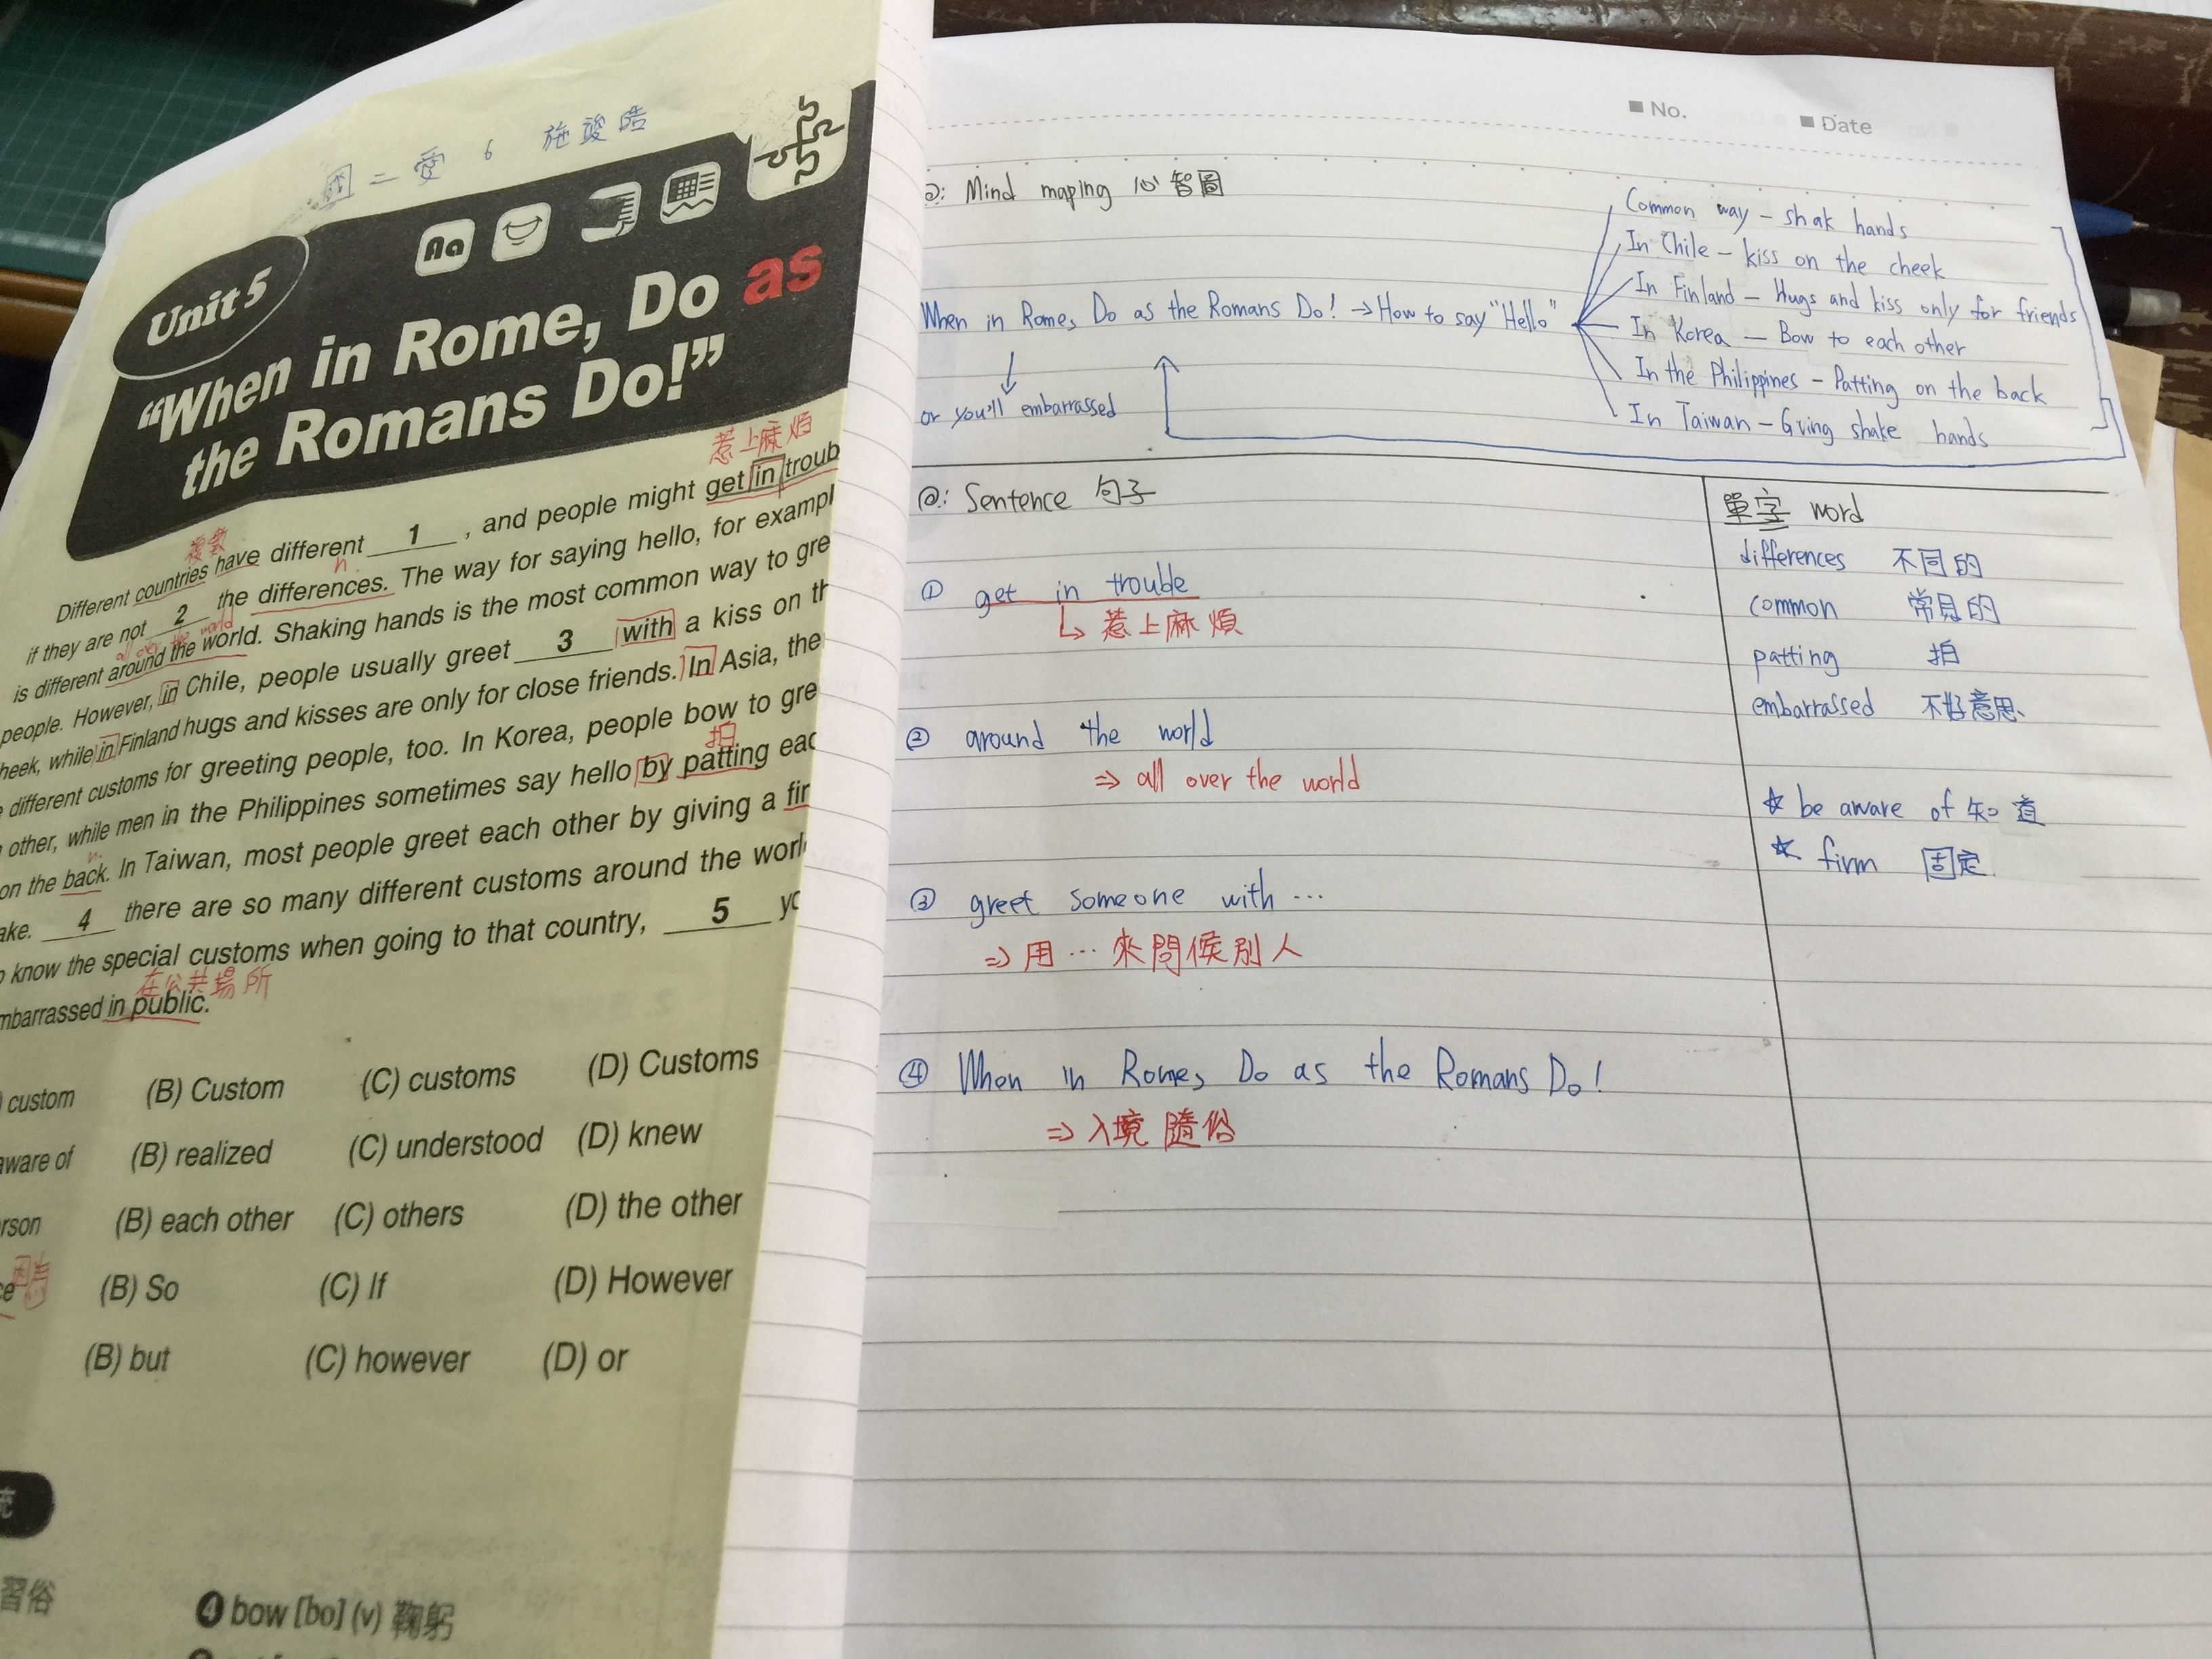 國二愛 6 施竣皓
Aa
Unit 5
"When in Rome, Do as
the Romans Do!"
惹上麻煩
Different countries have different 1 , and people might get in troub
複數
n.
if they are not 2 the differences. The way for saying hello, for exampl
all over the world
is different around the world. Shaking hands is the most common way to gre
people. However, in Chile, people usually greet 3 with a kiss on th
heek, while in Finland hugs and kisses are only for close friends. In Asia, the
e different customs for greeting people, too. In Korea, people bow to gre
拍
other, while men in the Philippines sometimes say hello by patting eac
n.
on the back. In Taiwan, most people greet each other by giving a fir
ake. 4 there are so many different customs around the worl
o know the special customs when going to that country, 5 yo
在公共場所
mbarrassed in public.
custom (B) Custom (C) customs (D) Customs
aware of (B) realized (C) understood (D) knew
rson (B) each other (C) others (D) the other
ce 因為 (B) So (C) If (D) However
(B) but (C) however (D) or
充
習俗
4 bow [bo] (v) 鞠躬
No. Date
@: Mind maping 心智圖
When in Rome, Do as the Romans Do! → How to say "Hello"
or you'll embarrassed
Common way - shak hands
In Chile - kiss on the cheek
In Finland - Hugs and kiss only for friends
In Korea - Bow to each other
In the Philippines - Patting on the back
In Taiwan - Gving shake hands
@: Sentence 句子
① get in trouble
惹上麻煩
② around the world
⇒ all over the world
③ greet someone with ...
⇒ 用 ... 來問候別人
④ When in Rome, Do as the Romans Do!
⇒ 入境隨俗
單字 word
differences 不同的
common 常見的
patting 拍
embarrassed 不好意思
☆ be aware of 知道
☆ firm 固定